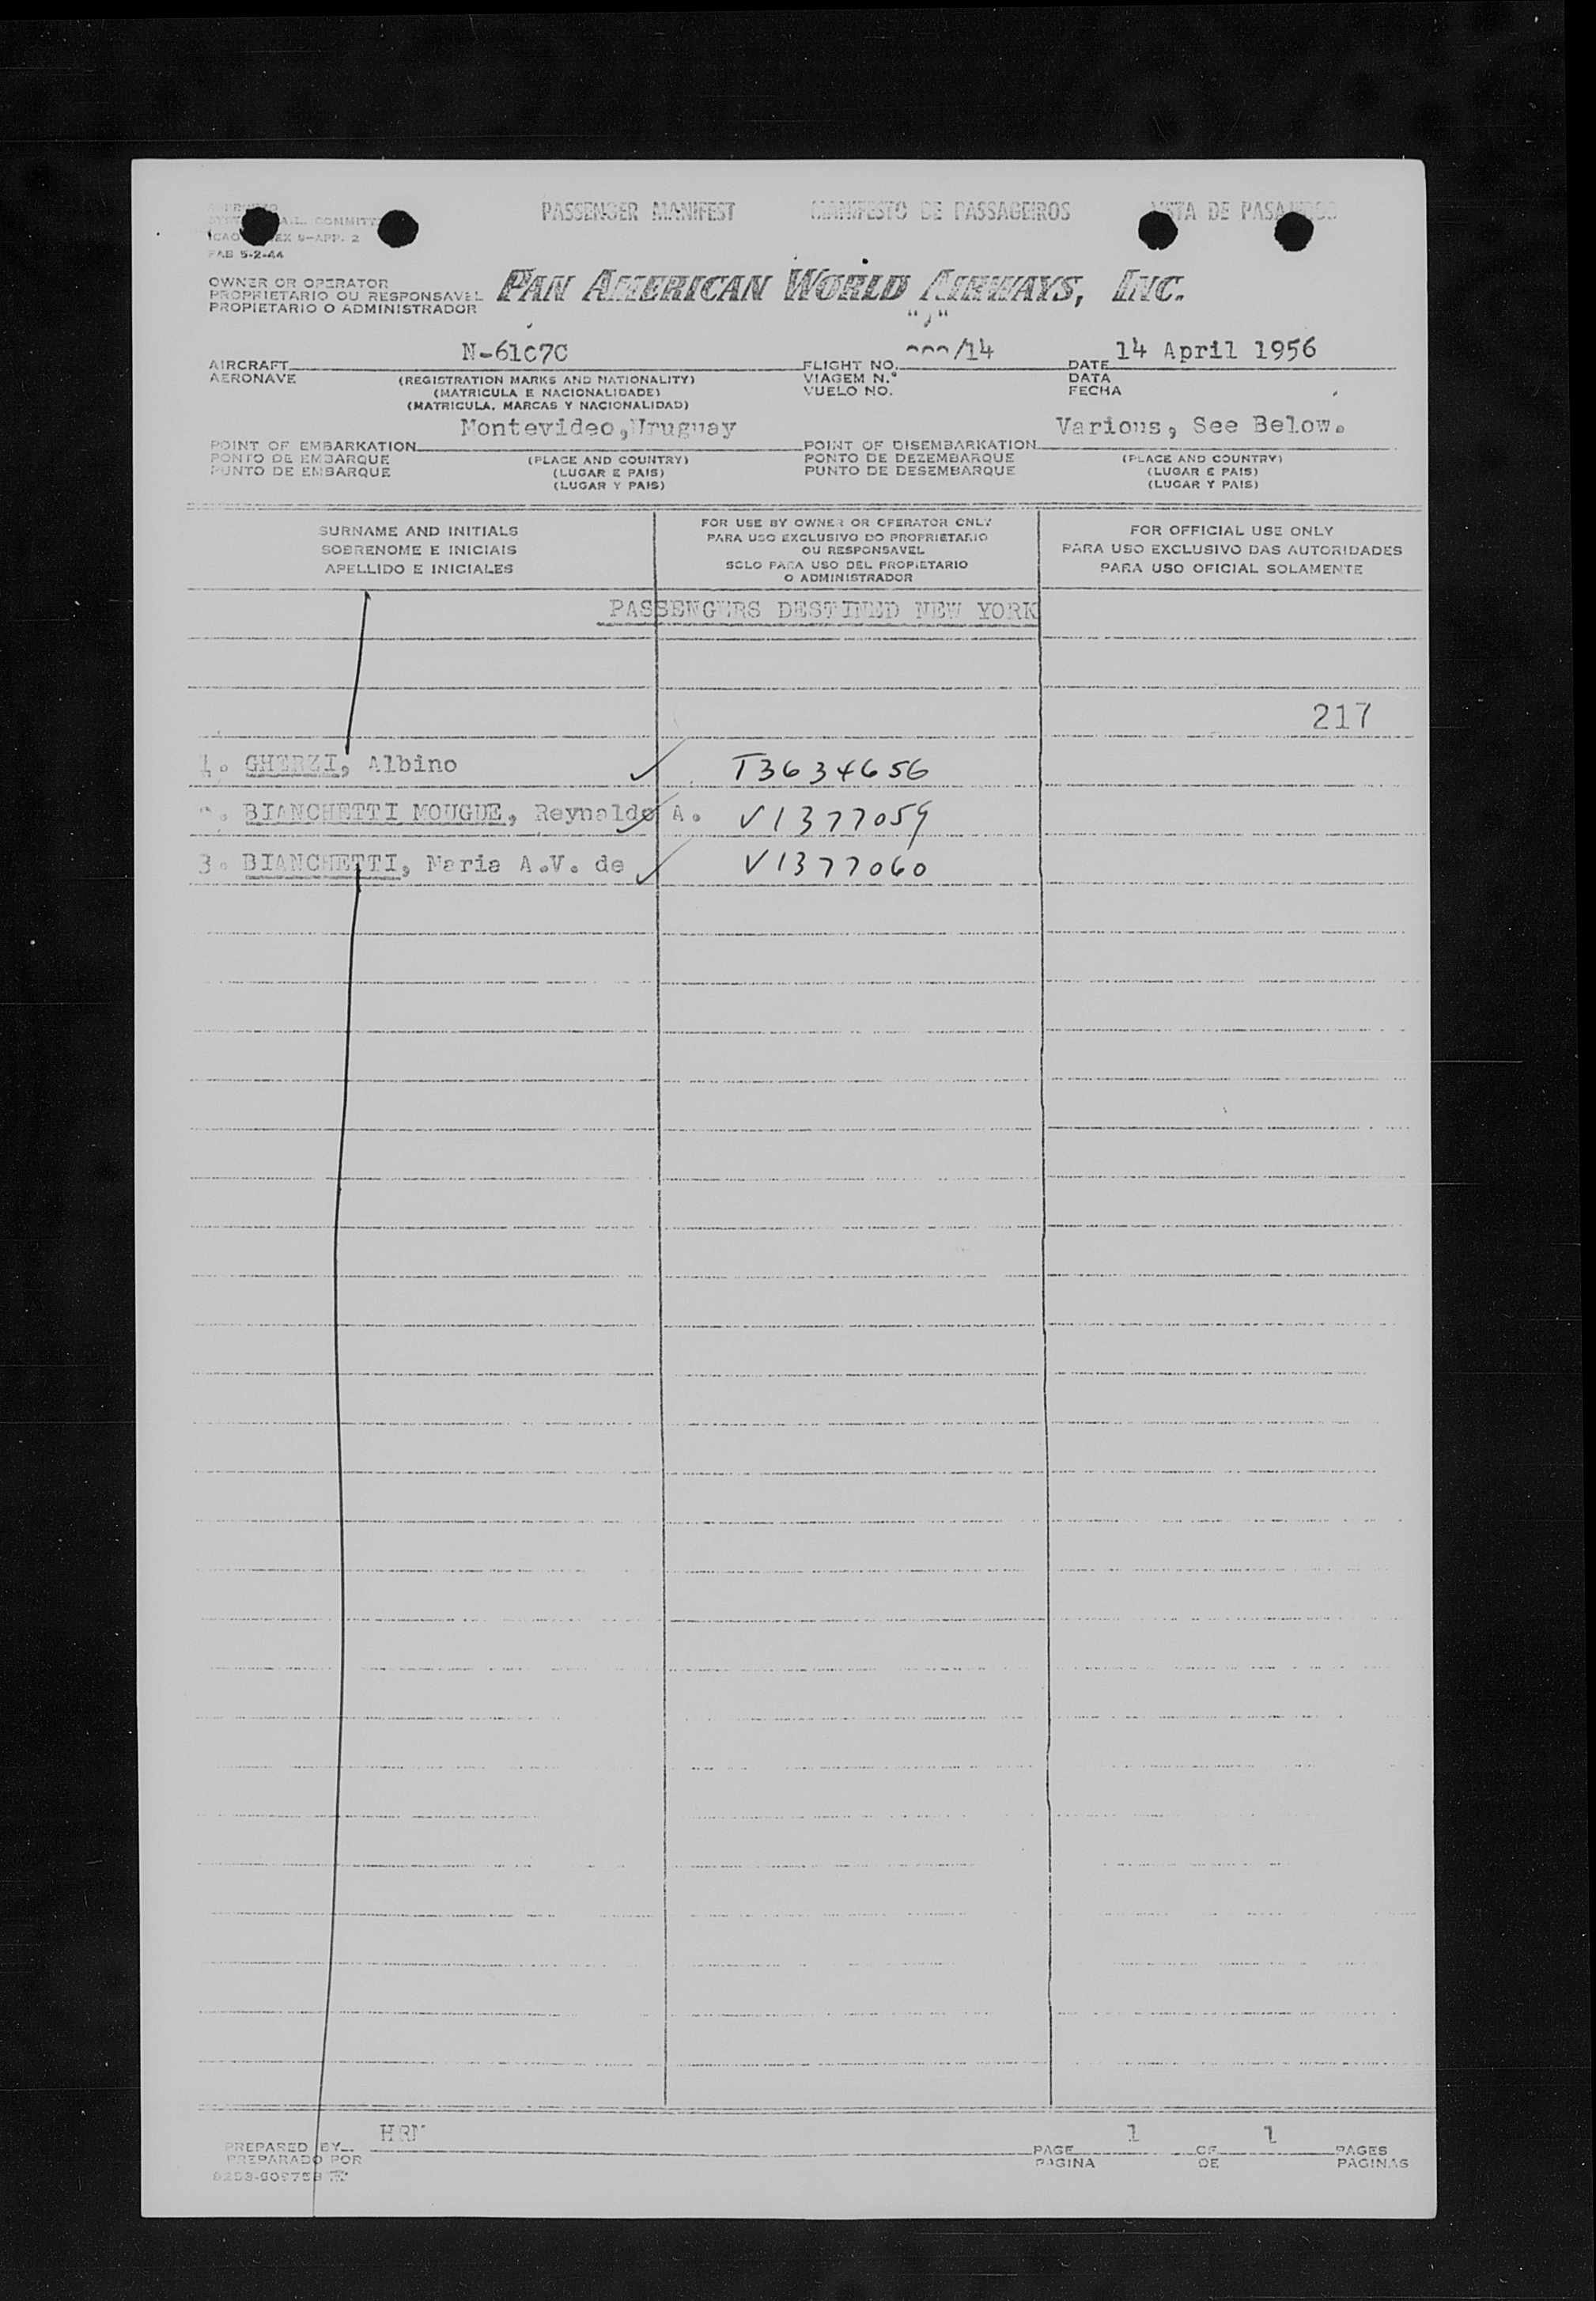 PASSENGER MANIFEST MANIFESTO DE PASSAGEIROS LISTA DE PASAJEROS
COMMITTEE
9-APP. 2
FAB 5-2-44
OWNER OR OPERATOR
PROPRIETARIO OU RESPONSAVEL
PROPIETARIO O ADMINISTRADOR
PAN AMERICAN WORLD AIRWAYS, INC.
AIRCRAFT N-6107C FLIGHT NO. /14 DATE 14 April 1956
AERONAVE (REGISTRATION MARKS AND NATIONALITY) VIAGEM N.º DATA
(MATRICULA E NACIONALIDADE) VUELO NO. FECHA
(MATRICULA, MARCAS Y NACIONALIDAD)
POINT OF EMBARKATION Montevideo, Uruguay POINT OF DISEMBARKATION Various, See Below.
PONTO DE EMBARQUE (PLACE AND COUNTRY) PONTO DE DEZEMBARQUE (PLACE AND COUNTRY)
PUNTO DE EMBARQUE (LUGAR E PAIS) PUNTO DE DESEMBARQUE (LUGAR E PAIS)
(LUGAR Y PAIS) (LUGAR Y PAIS)
SURNAME AND INITIALS
SOBRENOME E INICIAIS
APELLIDO E INICIALES
FOR USE BY OWNER OR OPERATOR ONLY
PARA USO EXCLUSIVO DO PROPRIETARIO
OU RESPONSAVEL
SOLO PARA USO DEL PROPIETARIO
O ADMINISTRADOR
FOR OFFICIAL USE ONLY
PARA USO EXCLUSIVO DAS AUTORIDADES
PARA USO OFICIAL SOLAMENTE
PASSENGERS DESTINED NEW YORK
217
1. GHERZI, Albino T3634656
BIANCHETTI MOUGUE, Reynaldo A. V1377059
3. BIANCHETTI, Maria A.V. de V1377060
PREPARED BY HRM PAGE 1 OF 1 PAGES
PREPARADO POR PAGINA DE PAGINAS